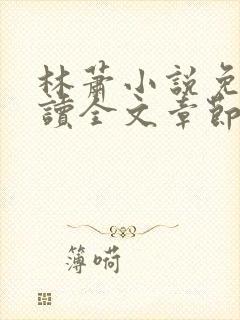 林蕭小説免
讀全文章節
簿嗬